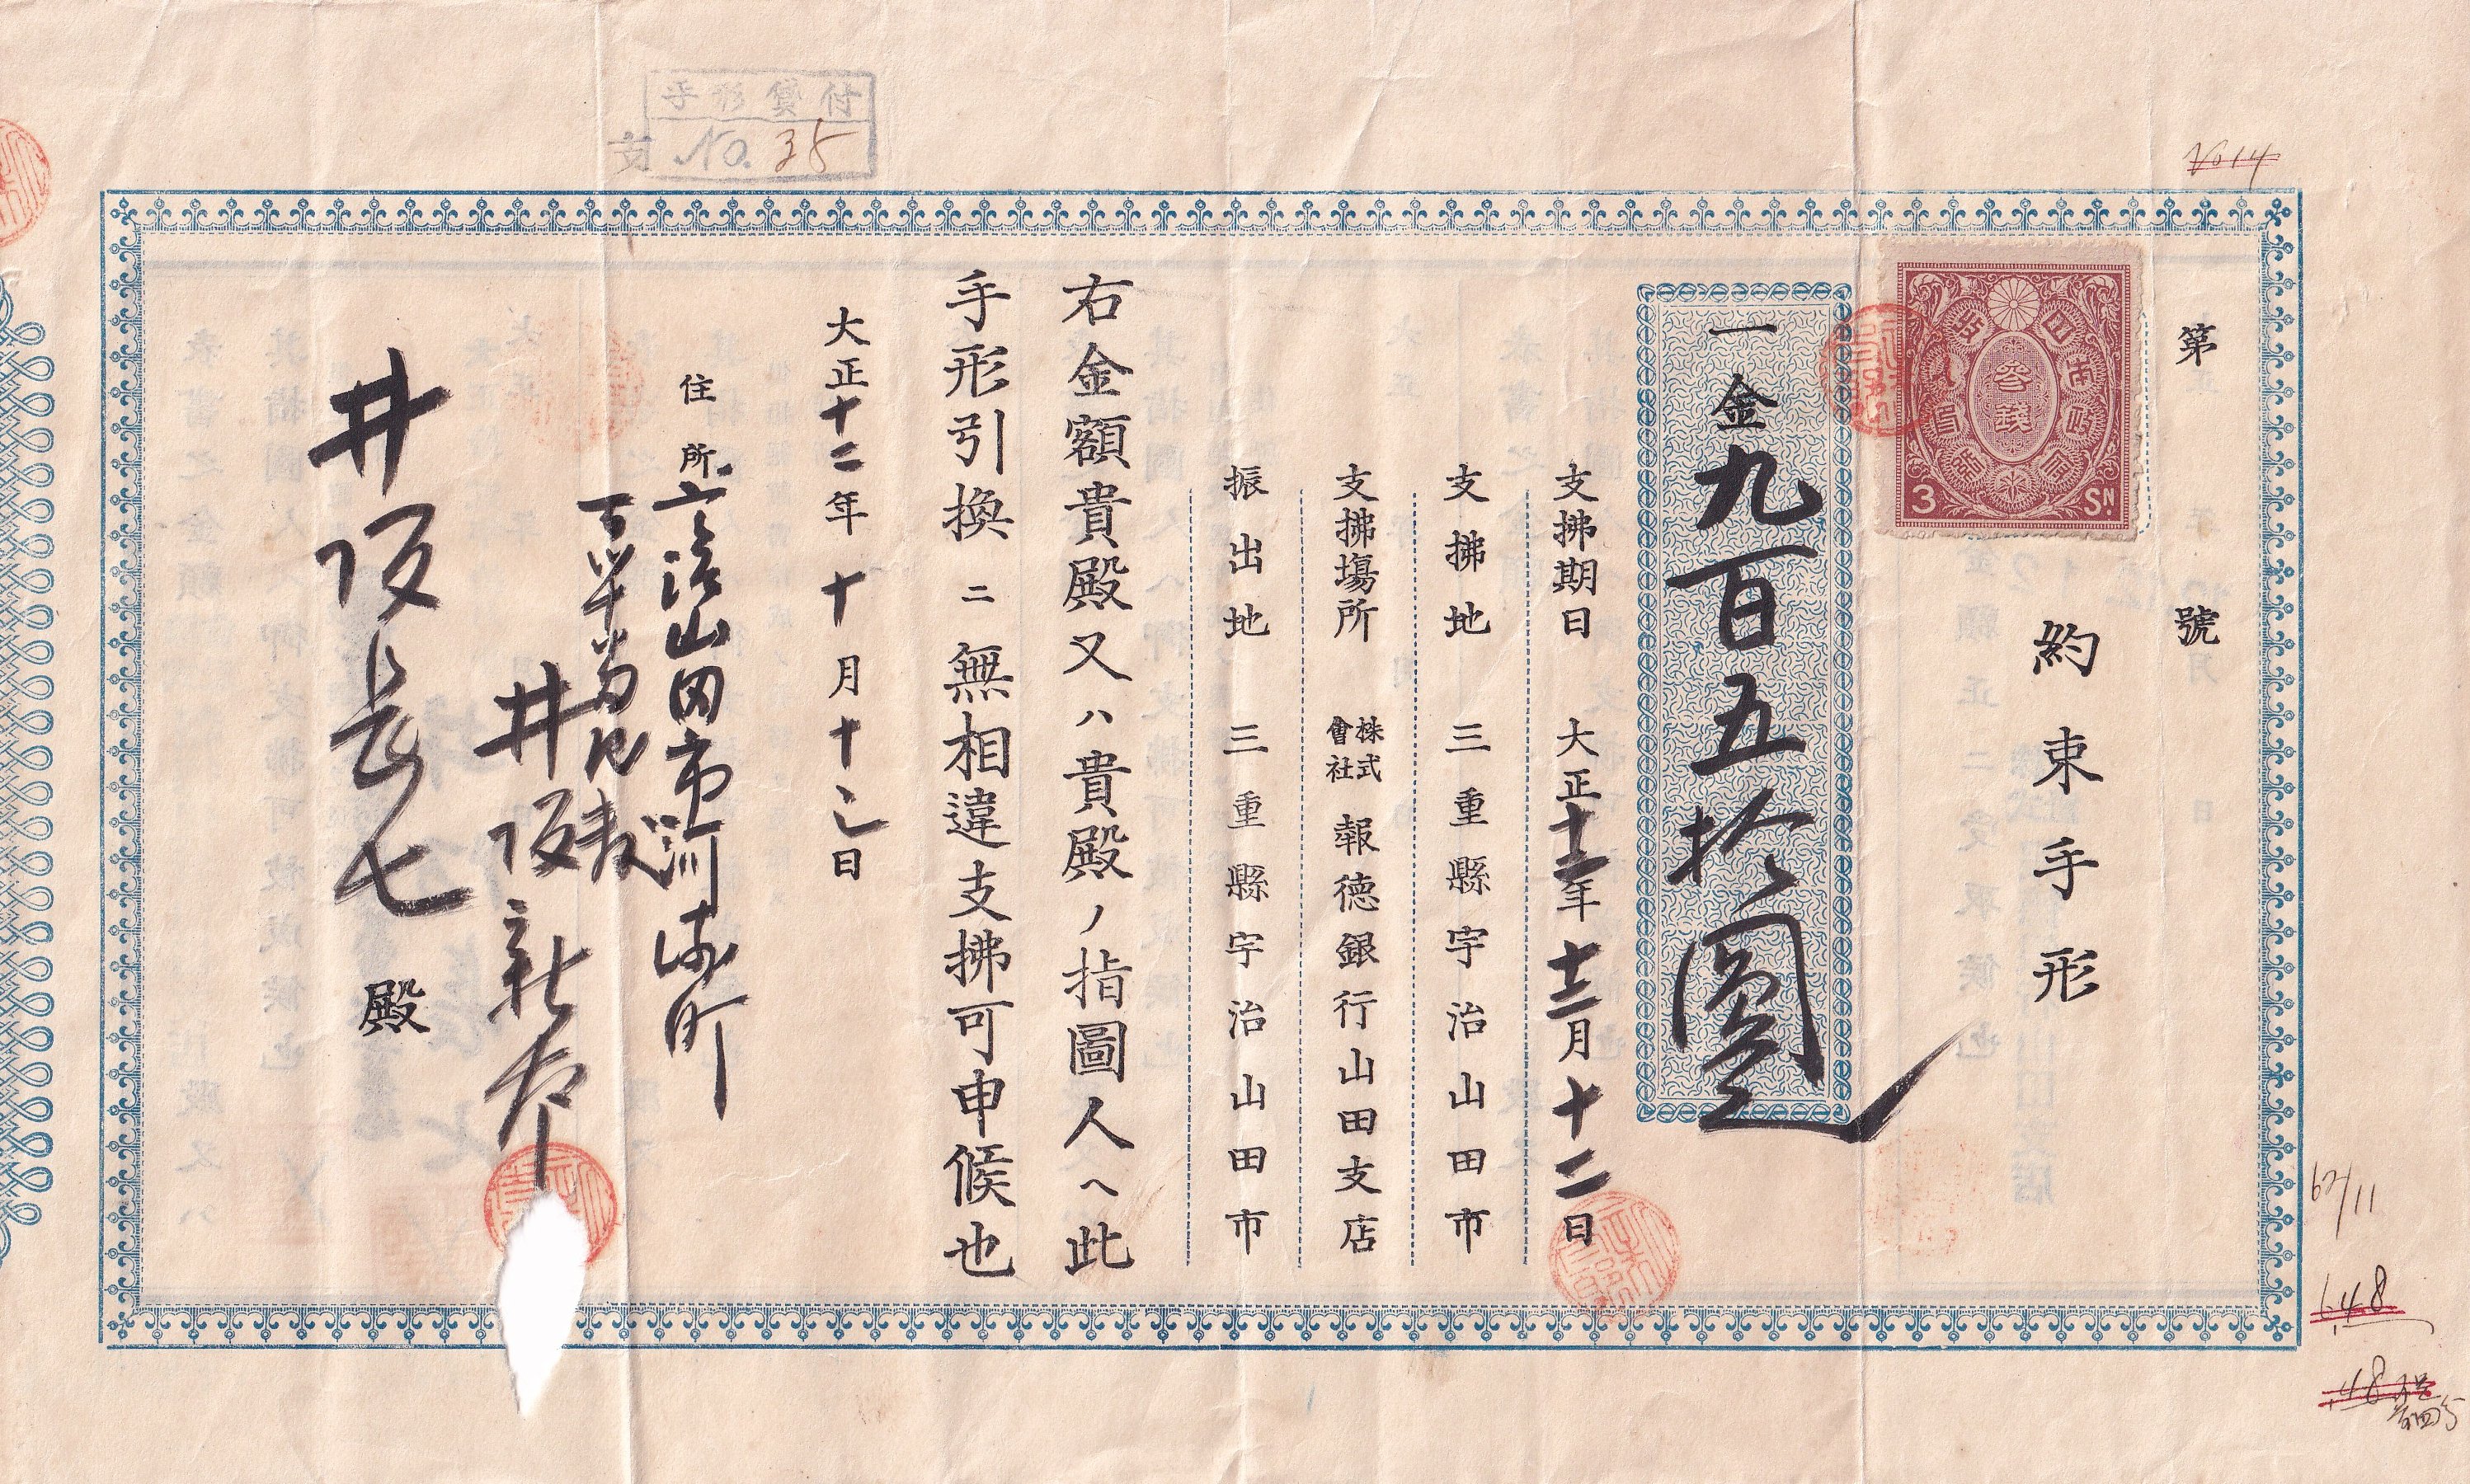 第 號
約束手形
一金九百五拾圓
支拂期日 大正十二年十二月十二日
支拂地 三重縣宇治山田市
支拂場所 株式會社報德銀行山田支店
振出地 三重縣宇治山田市
右金額貴殿又ハ貴殿ノ指圖人ヘ此
手形引換ニ無相違支拂可申候也
大正十二年十月十 日
住所 宇治山田市 町
井阪
井阪長七 殿
手形貸付
支 No. 35
No 14
3 SN
參錢
62/11